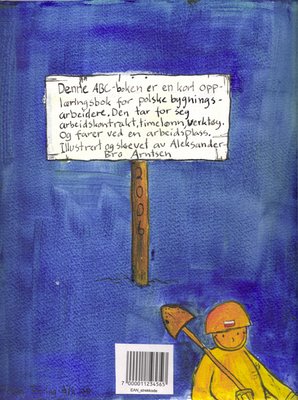 Denne ABC-boken er en kort opp-
læringsbok for polske bygnings-
arbeidere. Den tar for seg
arbeidskontrakt, timelønn, verktøy.
Og farer ved en arbeidsplass.
Illustrert og skrevet av Aleksander
Bro Arntsen
2006
7 000011 234565
EAN_strekkode